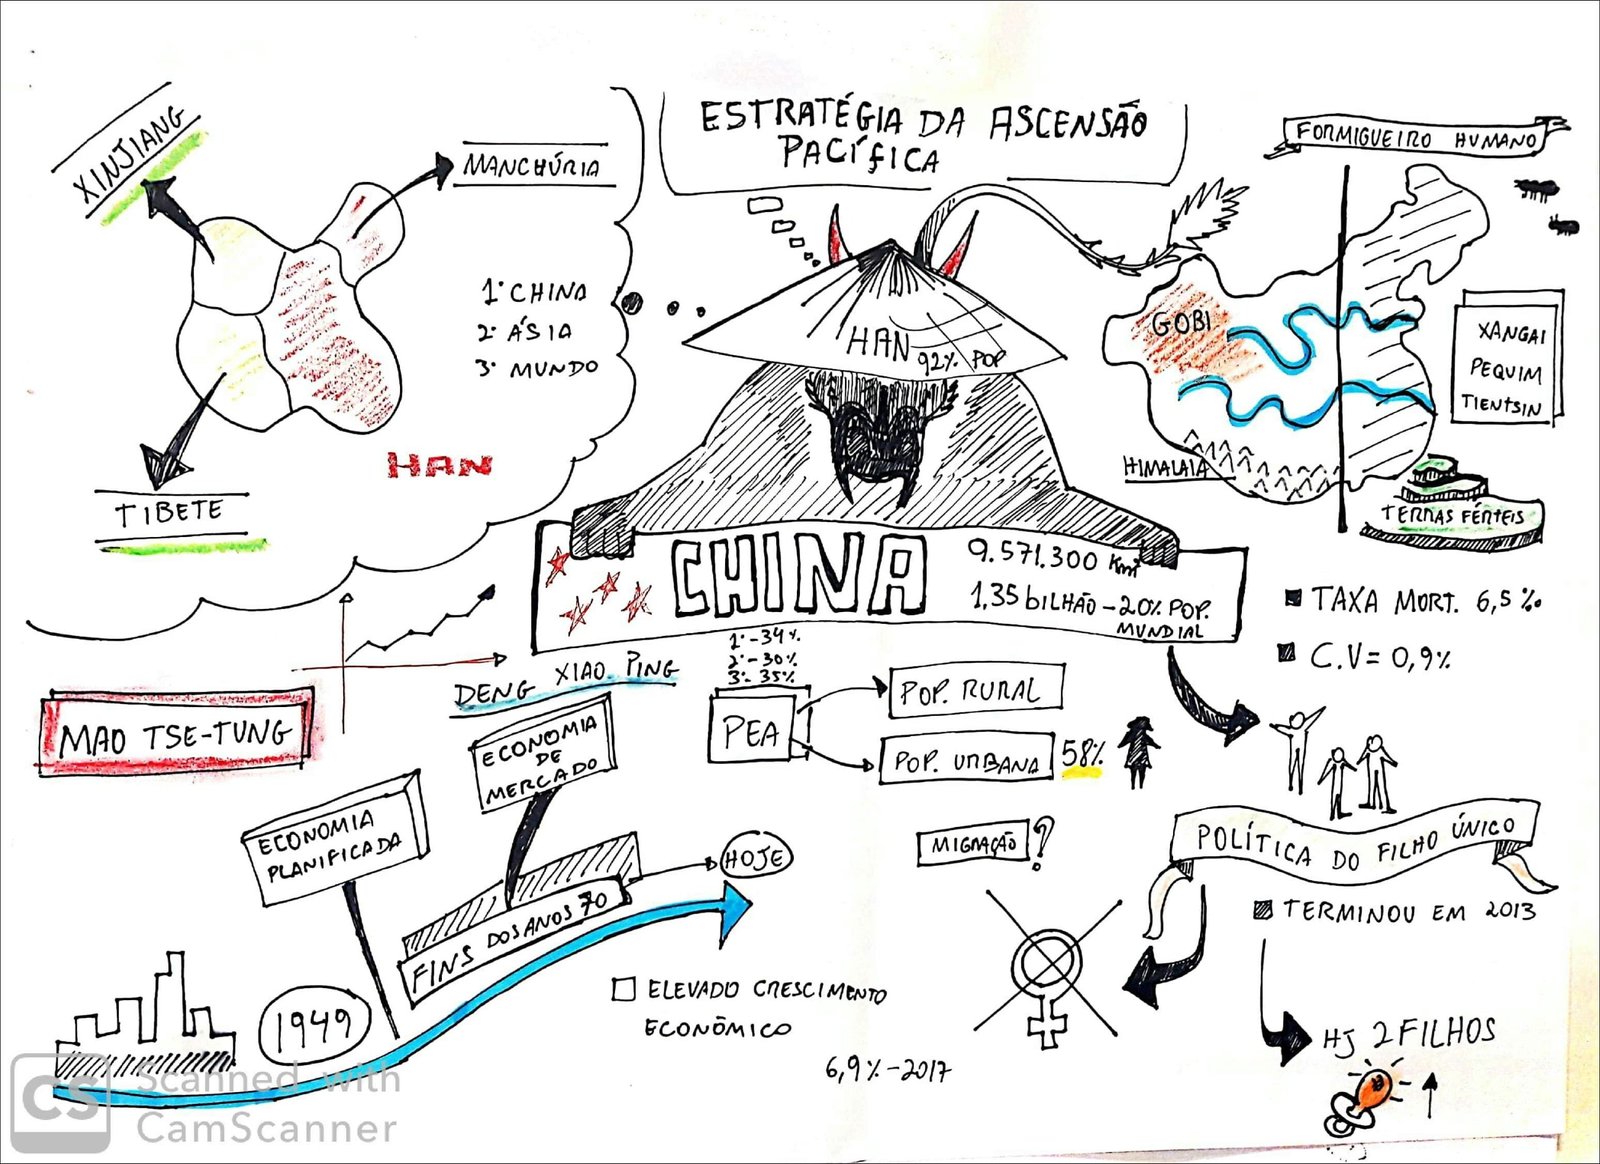 ESTRATÉGIA DA ASCENSÃO
PACÍFICA
XINJIANG
MANCHÚRIA
1º CHINA
2º ÁSIA
3º MUNDO
HAN
TIBETE
HAN
92% POP
FORMIGUEIRO HUMANO
GOBI
HIMALAIA
XANGAI
PEQUIM
TIENTSIN
TERRAS FÉRTEIS
CHINA
9.571.300 Km²
1,35 bILHÃO - 20% POP.
MUNDIAL
TAXA MORT. 6,5‰
C.V = 0,9%
MAO TSE-TUNG
DENG XIAO PING
1º - 34%
2º - 30%
3º - 35%
PEA
POP. RURAL
POP. URBANA 58%
MIGRAÇÃO ?
ECONOMIA
DE
MERCADO
ECONOMIA
PLANIFICADA
FINS DOS ANOS 70
HOJE
1949
ELEVADO CRESCIMENTO
ECONÔMICO
6,9% - 2017
POLÍTICA DO FILHO ÚNICO
TERMINOU EM 2013
HJ 2 FILHOS
CS
Scanned with
CamScanner